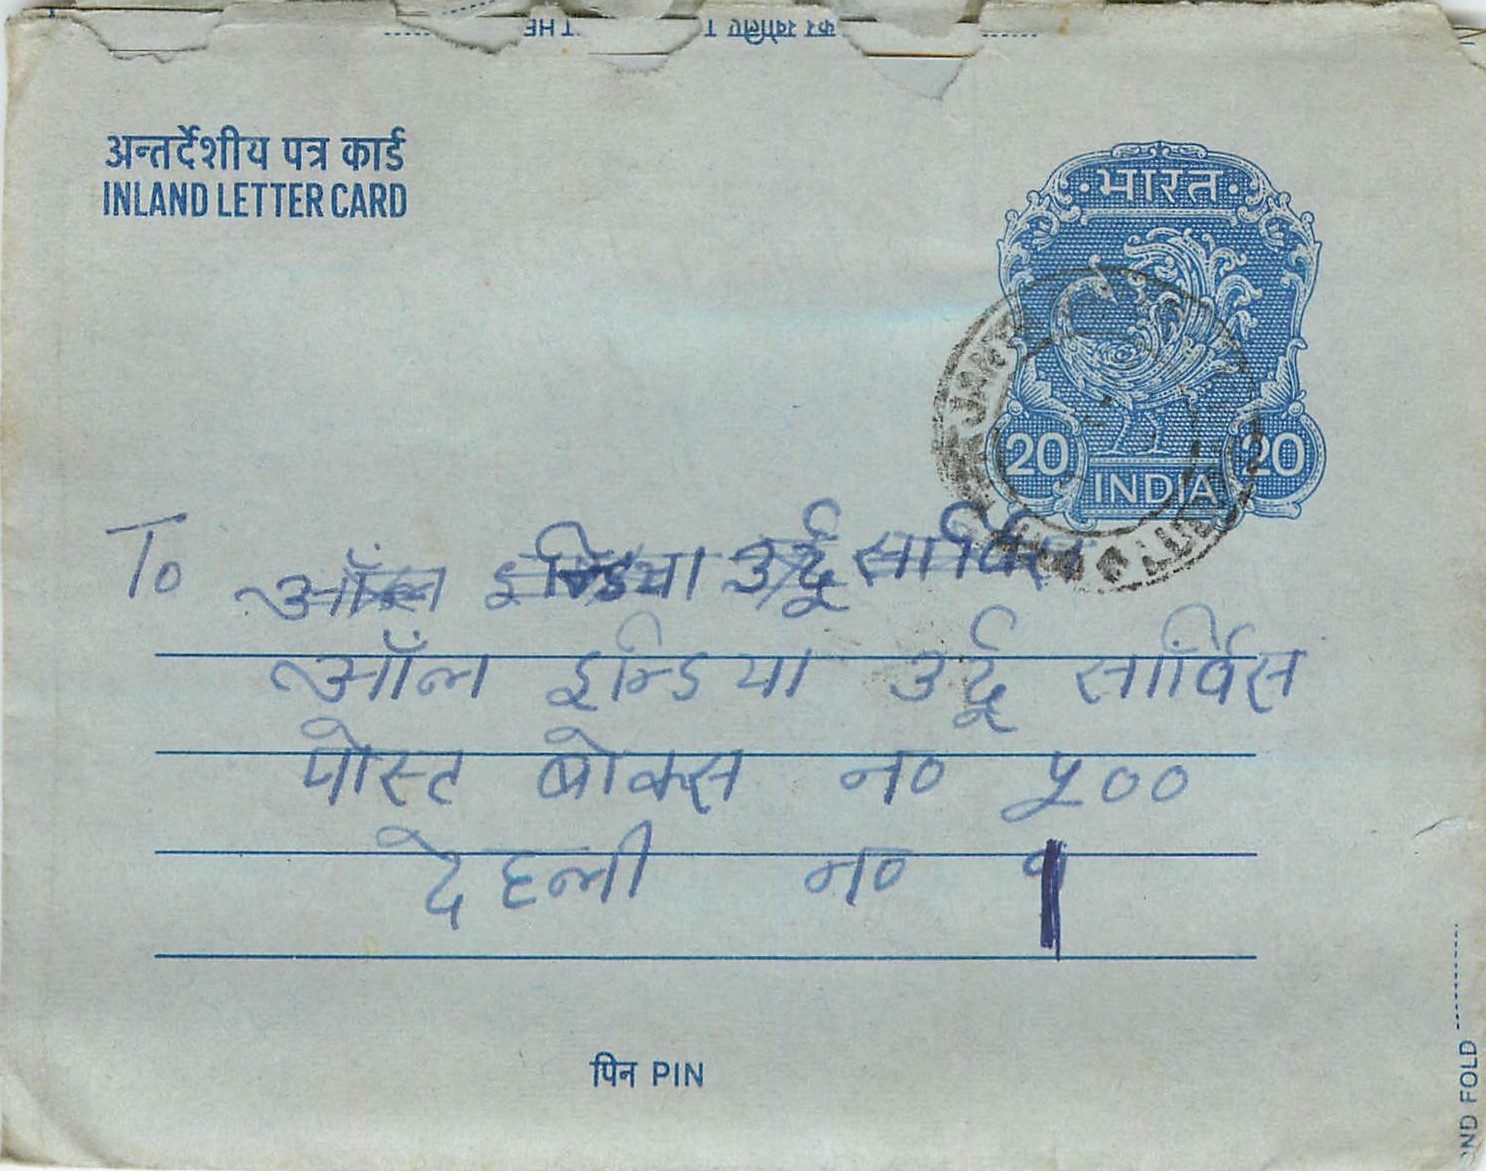 THE
कर खोलिए T
अन्तर्देशीय पत्र कार्ड
INLAND LETTER CARD
भारत
20 20
INDIA
To ऑल इन्डिया उर्दू सार्विस
ऑल इन्डिया उर्दू सार्विस
पोस्ट बोक्स न० ५००
देहली न० १
पिन PIN
OND FOLD